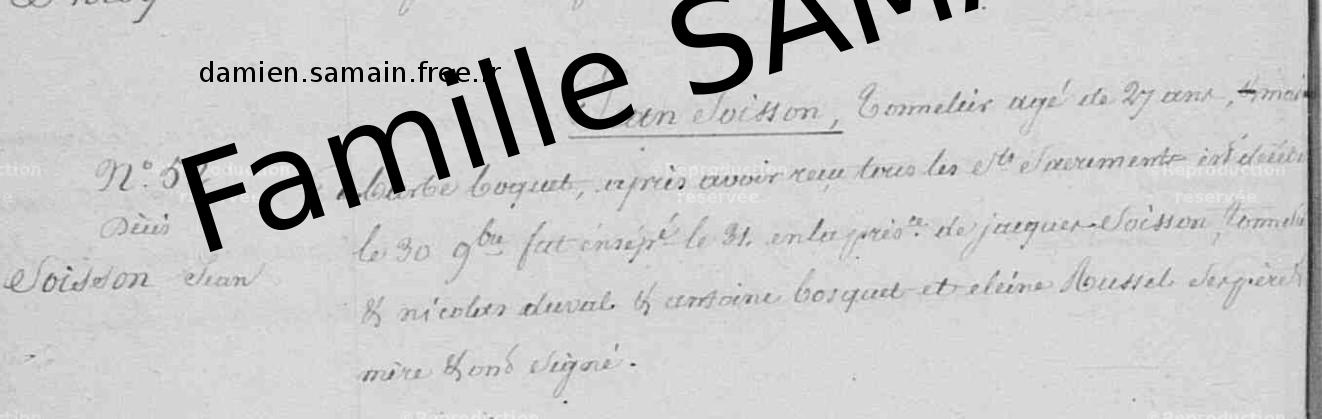 damien.samain.free.fr
Famille SAMA
Jean Soisson, tonnelier agé de 27 ans,
N°. 52
à barbe boquet, après avoir reçu tous les Sts Sacrements est décédé
Décès
le 30 9bre fut le 31 en la présce de jacques Soisson, tonnelier
Soisson Jean
& nicolas duval & antoine bosquet et eléine Russel ses père &
mère & ont Signé.
Reproduction
réservée